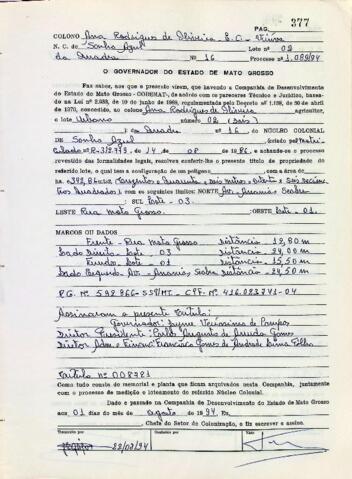 PAG. 377
COLONO Ana Rodrigues de Oliveira E.C. - Viúva
N. C. de Sonho Azul Lote nº 02
da Quadra Nº 16 Processo nº 1.089/94
O GOVERNADOR DO ESTADO DE MATO GROSSO
Faz saber, aos que a presente virem, que havendo a Companhia de Desenvolvimento
do Estado de Mato Grosso - CODEMAT-, de acordo com os pareceres Técnico e Jurídico, basea-
do na Lei nº 2.838, de 10 de junho de 1968, regulamentada pelo Decreto nº 1.138, de 30 de abril
de 1970, concedido, ao colono Ana Rodrigues de Oliveira agricultor,
o lote Urbano número 02 (dois)
Quadra nº 16 do NÚCLEO COLONIAL
de Sonho Azul criado
nº R-3/2.979 14 de 08 de 1986. e achando-se o processo
revestido das formalidades legais, resolveu conferir-lhe o presente título de propriedade do
referido lote, o qual tem a configuração de um polígono com a área de
e com os seguintes limites: NORTE Av. Ananias
SUL Lote - 03.
LESTE Rua Mato Grosso. OESTE Lote - 01.
MARCOS OU DADOS
Frente - Rua Mato Grosso distância - 12,80 m
Lado Direito - Lote - 03 distância - 24,00 m
Fundos - Lote - 01 distância - 15,50 m
Lado Esquerdo - Av. - Ananias distância - 24,50 m
R.G. Nº 598.966-SSP/MT - CPF. Nº 416.083.741-04
Assinaram o presente título:
Governador: Jayme Veríssimo de Campos
Diretor Presidente: Carlos Augusto de Arruda Gomes
Diretor Adm. e Financ: Francisco Gomes de Andrade Lima Filho
Título nº 008781
Como tudo consta do memorial e planta que ficam arquivados nesta Companhia, juntamente
com o processo de medição e loteamento do referido Núcleo Colonial.
Dado e passado na Companhia de Desenvolvimento do Estado de Mato Grosso
aos 01 dias do mês de agosto de 1994. Eu,
Chefe do Setor de Colonização, o fiz escrever e assino.
Transcrito por Conferido por
22/09/94